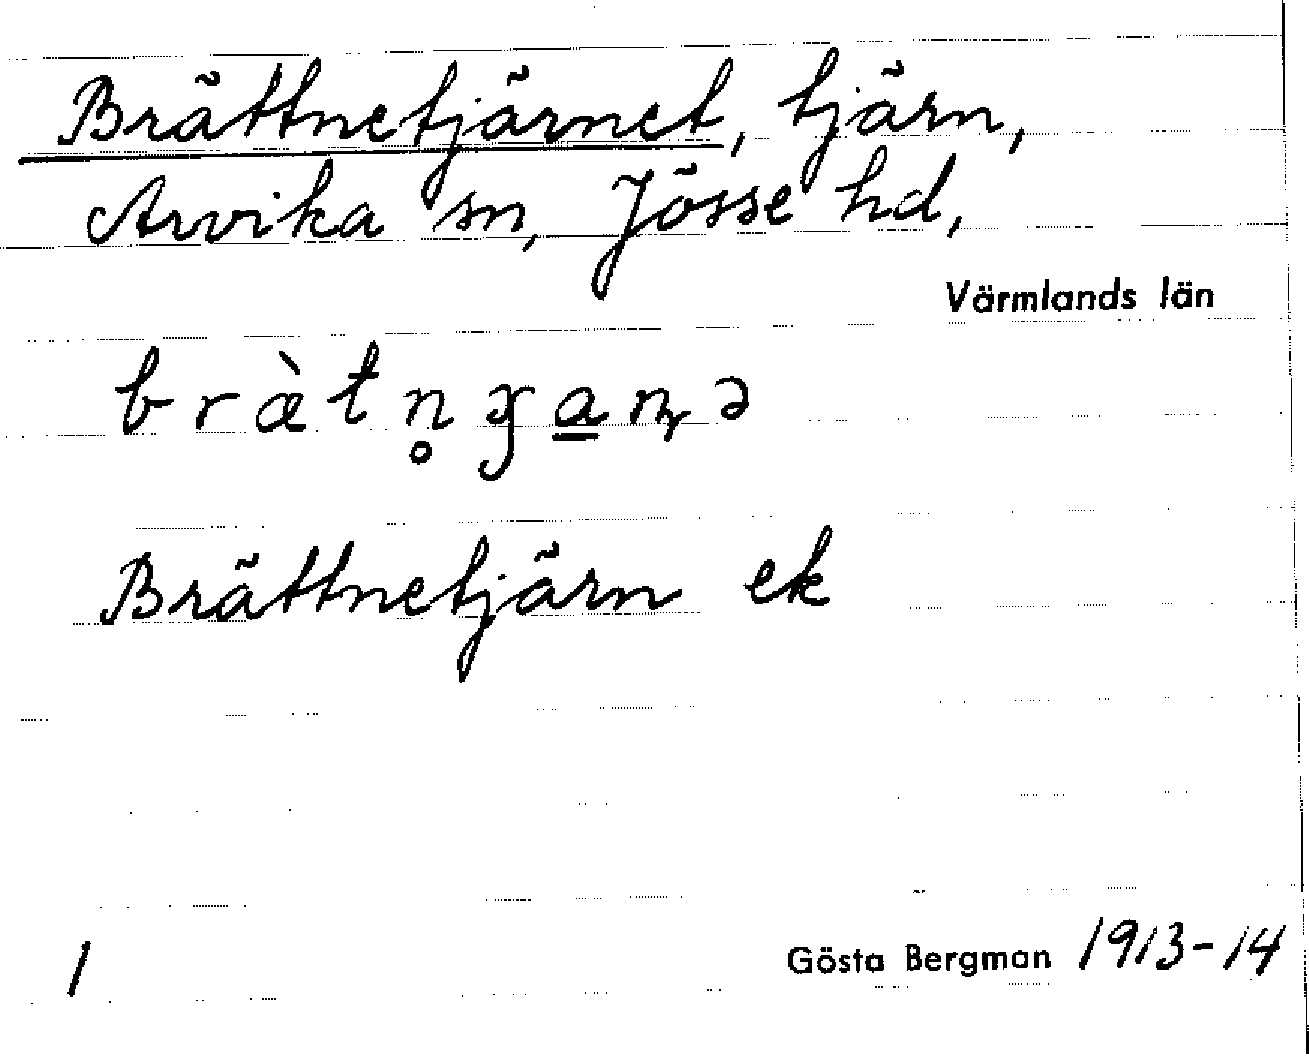 Brättnetjärnet, tjärn,
Arvika sn, Jösse hd,
Värmlands län
Brättnetjärn ek
1
Gösta Bergman 1913-14